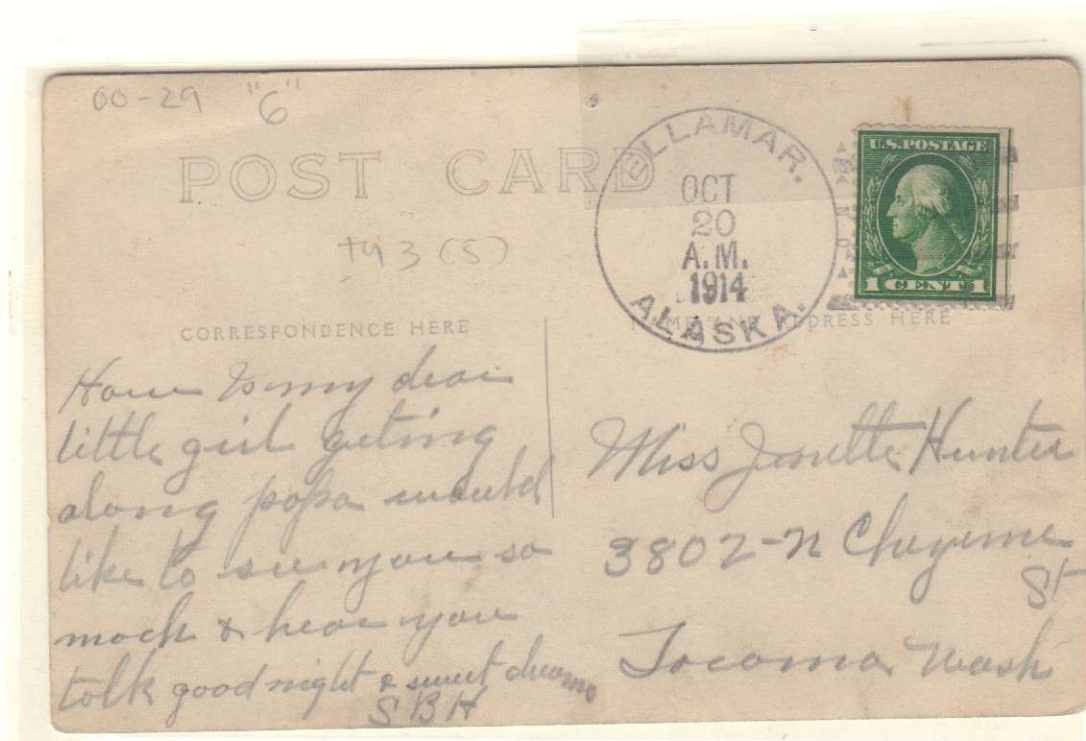 00-29 "6"
POST CARD
+93 (5)
ELLAMAR.
OCT
20
A.M.
1914
ALASKA.
U.S. POSTAGE
1 CENT 1
CORRESPONDENCE HERE
NAME AND ADDRESS HERE
How is my dear
little girl geting
along papa would
like to see you so
moch & hear you
tolk good night & sweet dreams
SBH
Miss Janette Hunter
3802-N Cheyenne
St
Tacoma Wash